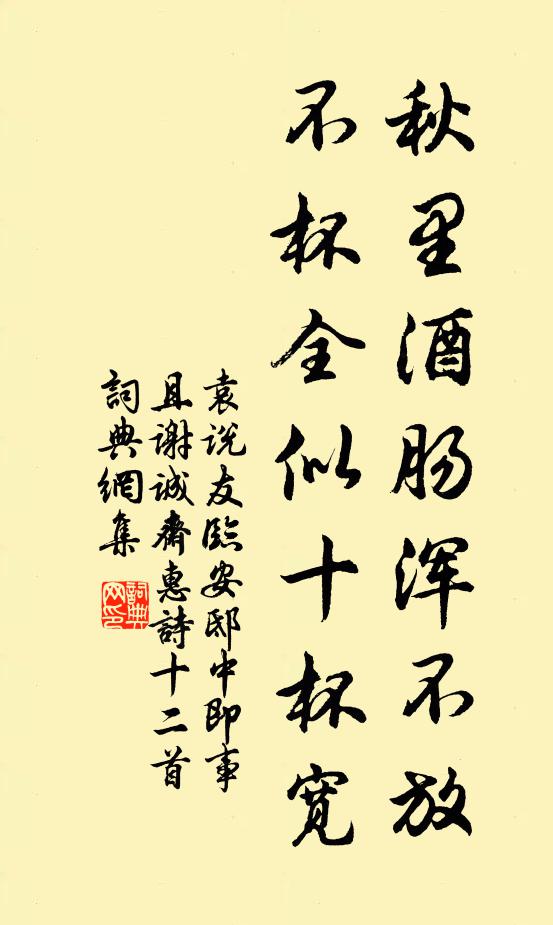 秋里酒肠浑不放
不杯全似十杯寛
袁说友臨安邸中即事
且謝誠齋惠詩十二首
詞典網集
詞典网印